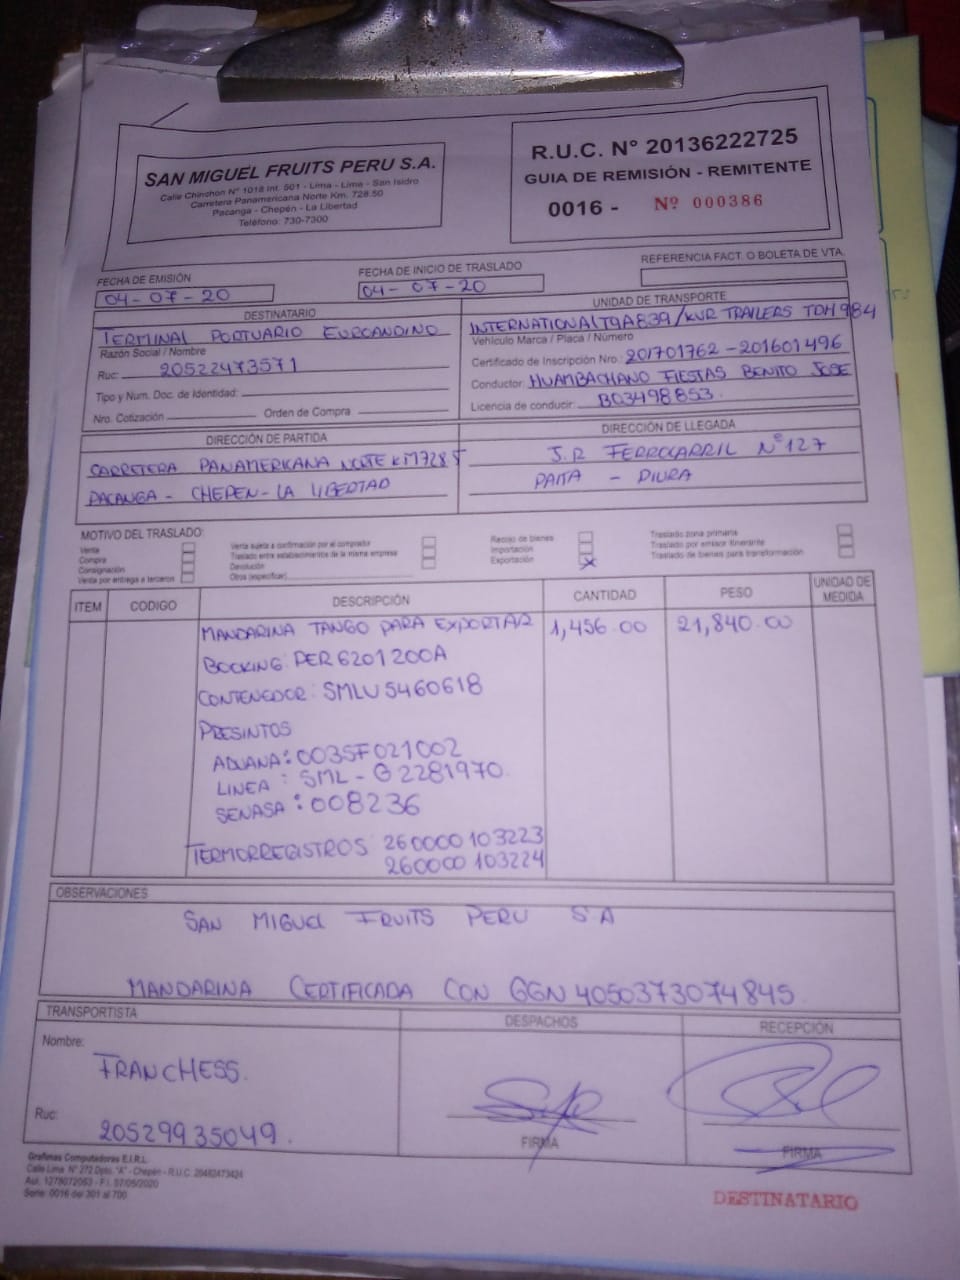 SAN MIGUEL FRUITS PERU S.A.
Calle Chinchon N° 1018 Int. 501 - Lima - Lima - San Isidro
Carretera Panamericana Norte Km. 728.50
Pacanga - Chepén - La Libertad
Teléfono: 730-7300
R.U.C. N° 20136222725
GUIA DE REMISIÓN - REMITENTE
0016 - Nº 000386
FECHA DE EMISIÓN
04-07-20
FECHA DE INICIO DE TRASLADO
04-07-20
REFERENCIA FACT. O BOLETA DE VTA.
DESTINATARIO
TERMINAL PORTUARIO EUROANDINO
Razón Social / Nombre
Ruc: 20522473571
Tipo y Num. Doc. de Identidad:
Nro. Cotización Orden de Compra
UNIDAD DE TRANSPORTE
INTERNATIONAL T9A839/KUR TRAILERS TDH984
Vehículo Marca / Placa / Número
Certificado de Inscripción Nro.: 201701762-201601496
Conductor: HUAMBACHANO FIESTAS BENITO JOSE
Licencia de conducir: B03498853.
DIRECCIÓN DE PARTIDA
CARRETERA PANAMERICANA NORTE KM728.5
PACANGA - CHEPEN - LA LIBERTAD
DIRECCIÓN DE LLEGADA
J.R FERROCARRIL N°127
PAITA - PIURA
MOTIVO DEL TRASLADO:
Venta
Compra
Consignación
Venta por entrega a terceros
Venta sujeta a confirmación por el comprador
Traslado entre establecimientos de la misma empresa
Devolución
Otros (especificar)
Recojo de bienes
Importación
Exportación X
Traslado zona primaria
Traslado por emisor itinerante
Traslado de bienes para transformación
ITEM CODIGO DESCRIPCIÓN CANTIDAD PESO UNIDAD DE MEDIDA
MANDARINA TANGO PARA EXPORTAR 1,456.00 21,840.00
BOOKING: PER6201200A
CONTENEDOR: SMLU5460618
PRESINTOS
ADUANA: 0035F021002
LINEA: SML - G2281970.
SENASA: 008236
TERMORREGISTROS 260000103223
260000103224
OBSERVACIONES
SAN MIGUEL FRUITS PERU S A
MANDARINA CERTIFICADA CON GGN 4050373074845
TRANSPORTISTA
Nombre:
FRANCHESS.
Ruc:
20529935049.
DESPACHOS
FIRMA
RECEPCIÓN
FIRMA
Grafimas Computadoras E.I.R.L.
Calle Lima N° 272 Dpto. "A" - Chepén - R.U.C. 20482473424
Aut. 1278072063 - F.I. 07/05/2020
Serie: 0016 del 301 al 700
DESTINATARIO